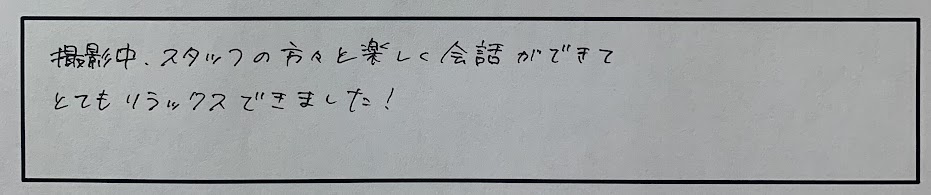 撮影中、スタッフの方々と楽しく会話ができて
とてもリラックスできました!